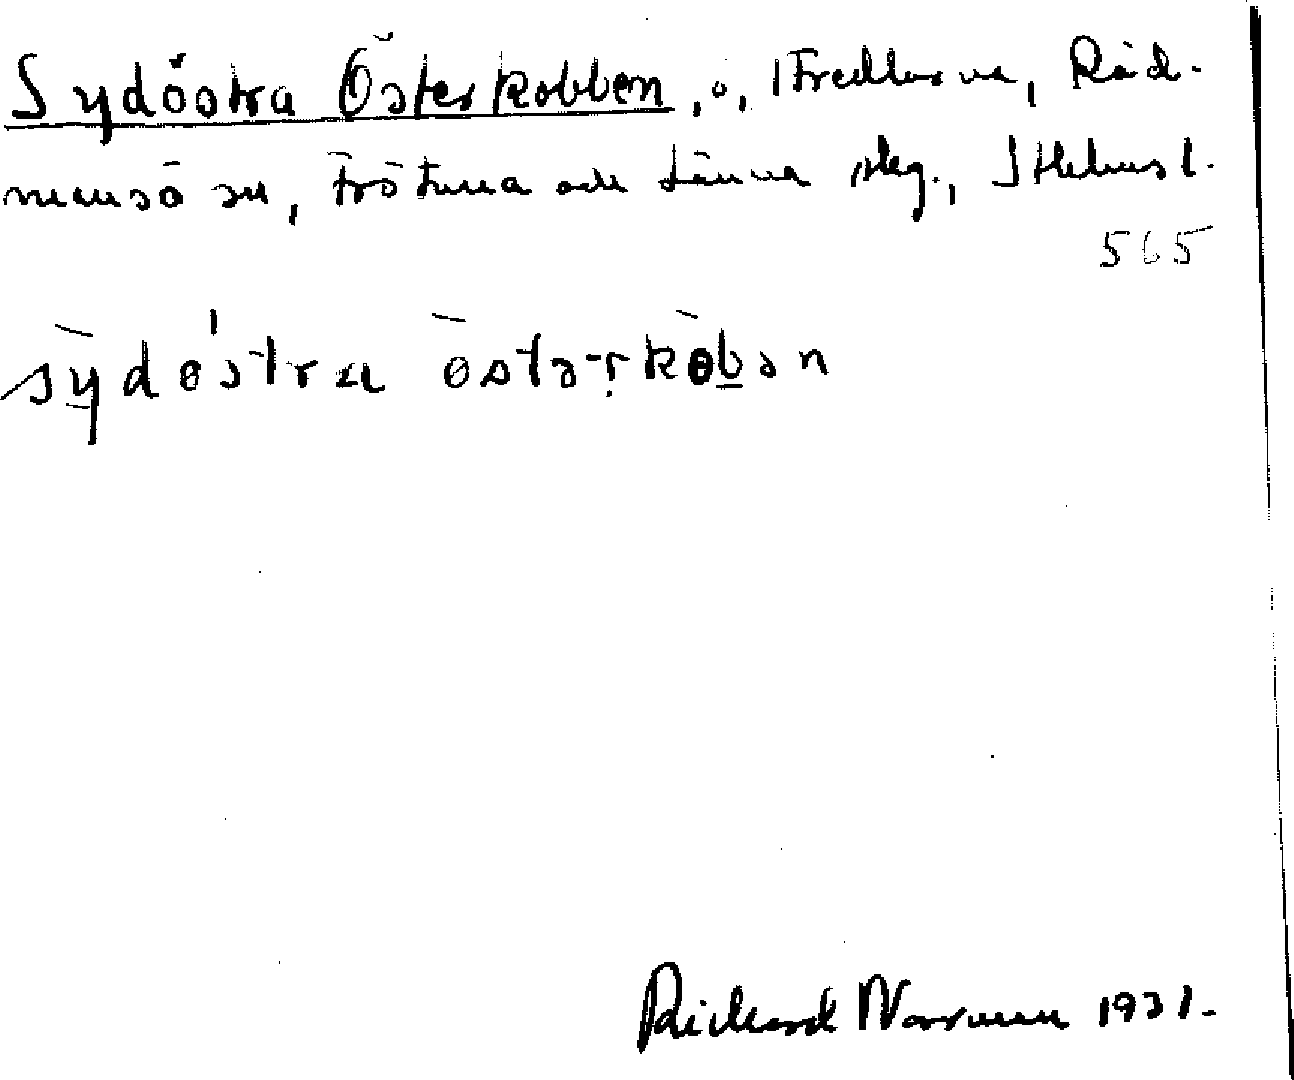 Sydöstra Österkobben, ö, Fredlarna, Råd-
mansö sn, Frötuna och Länna skg., Sthlms l.
565
sydöstra östərkobən
Richard Norrman 1931.